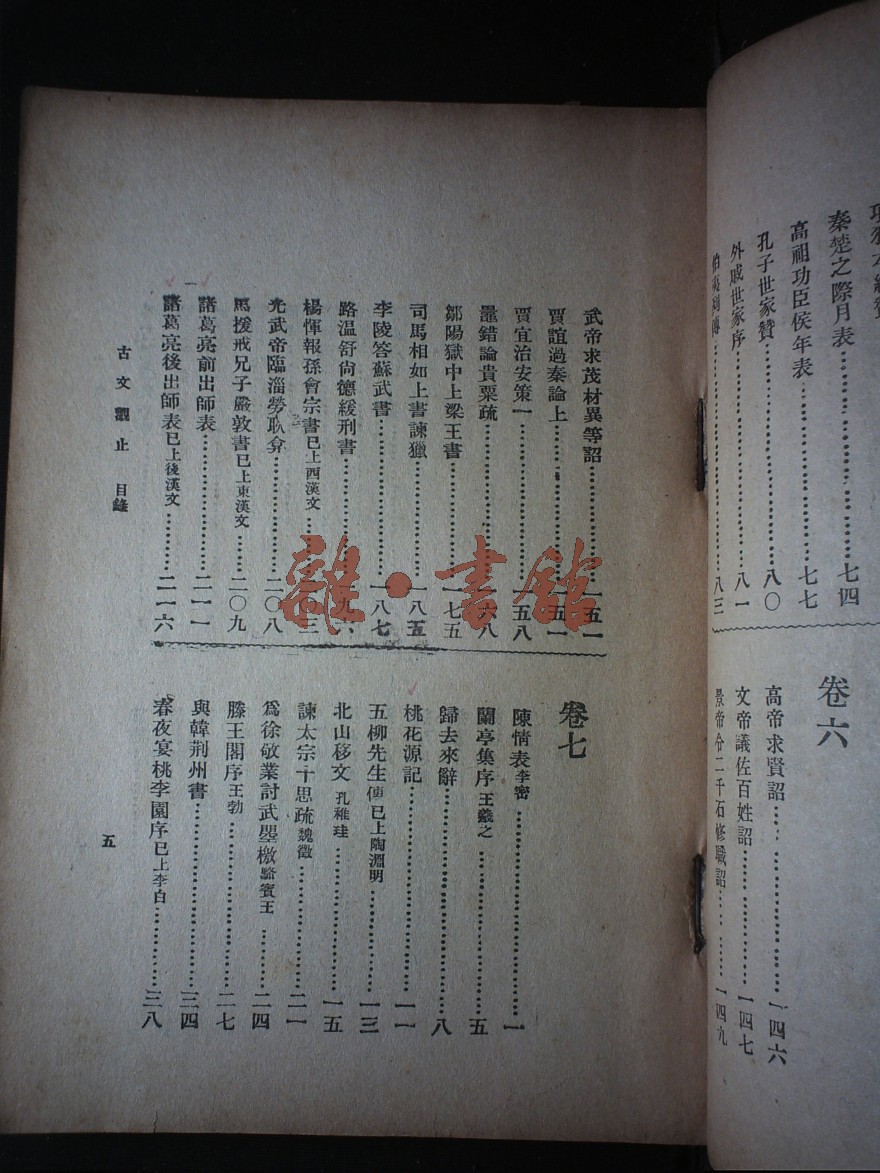 秦楚之際月表………………七四
高祖功臣侯年表………………七七
孔子世家贊………………八〇
外戚世家序………………八一
伯夷列傳………………八三
卷六
高帝求賢詔………………一四六
文帝議佐百姓詔………………一四七
景帝令二千石修職詔………………一四九
武帝求茂材異等詔………………一五一
賈誼過秦論上………………一五一
賈宜治安策一………………一五八
鼂錯論貴粟疏………………一六八
鄒陽獄中上梁王書………………一七五
司馬相如上書諫獵………………一八五
李陵答蘇武書………………一八七
路温舒尚德緩刑書………………一九六
楊惲報孫會宗書已上西漢文………………二〇三
光武帝臨淄勞耿弇………………二〇八
馬援戒兄子嚴敦書已上東漢文………………二〇九
諸葛亮前出師表………………二一一
諸葛亮後出師表已上後漢文………………二一六
卷七
陳情表李密………………一
蘭亭集序王羲之………………五
歸去來辭………………八
桃花源記………………一一
五柳先生傳已上陶淵明………………一三
北山移文孔稚珪………………一五
諫太宗十思疏魏徵………………二一
爲徐敬業討武曌檄駱賓王………………二四
滕王閣序王勃………………二七
與韓荆州書………………三四
春夜宴桃李園序已上李白………………三八
古文觀止 目錄
五
雜·書館